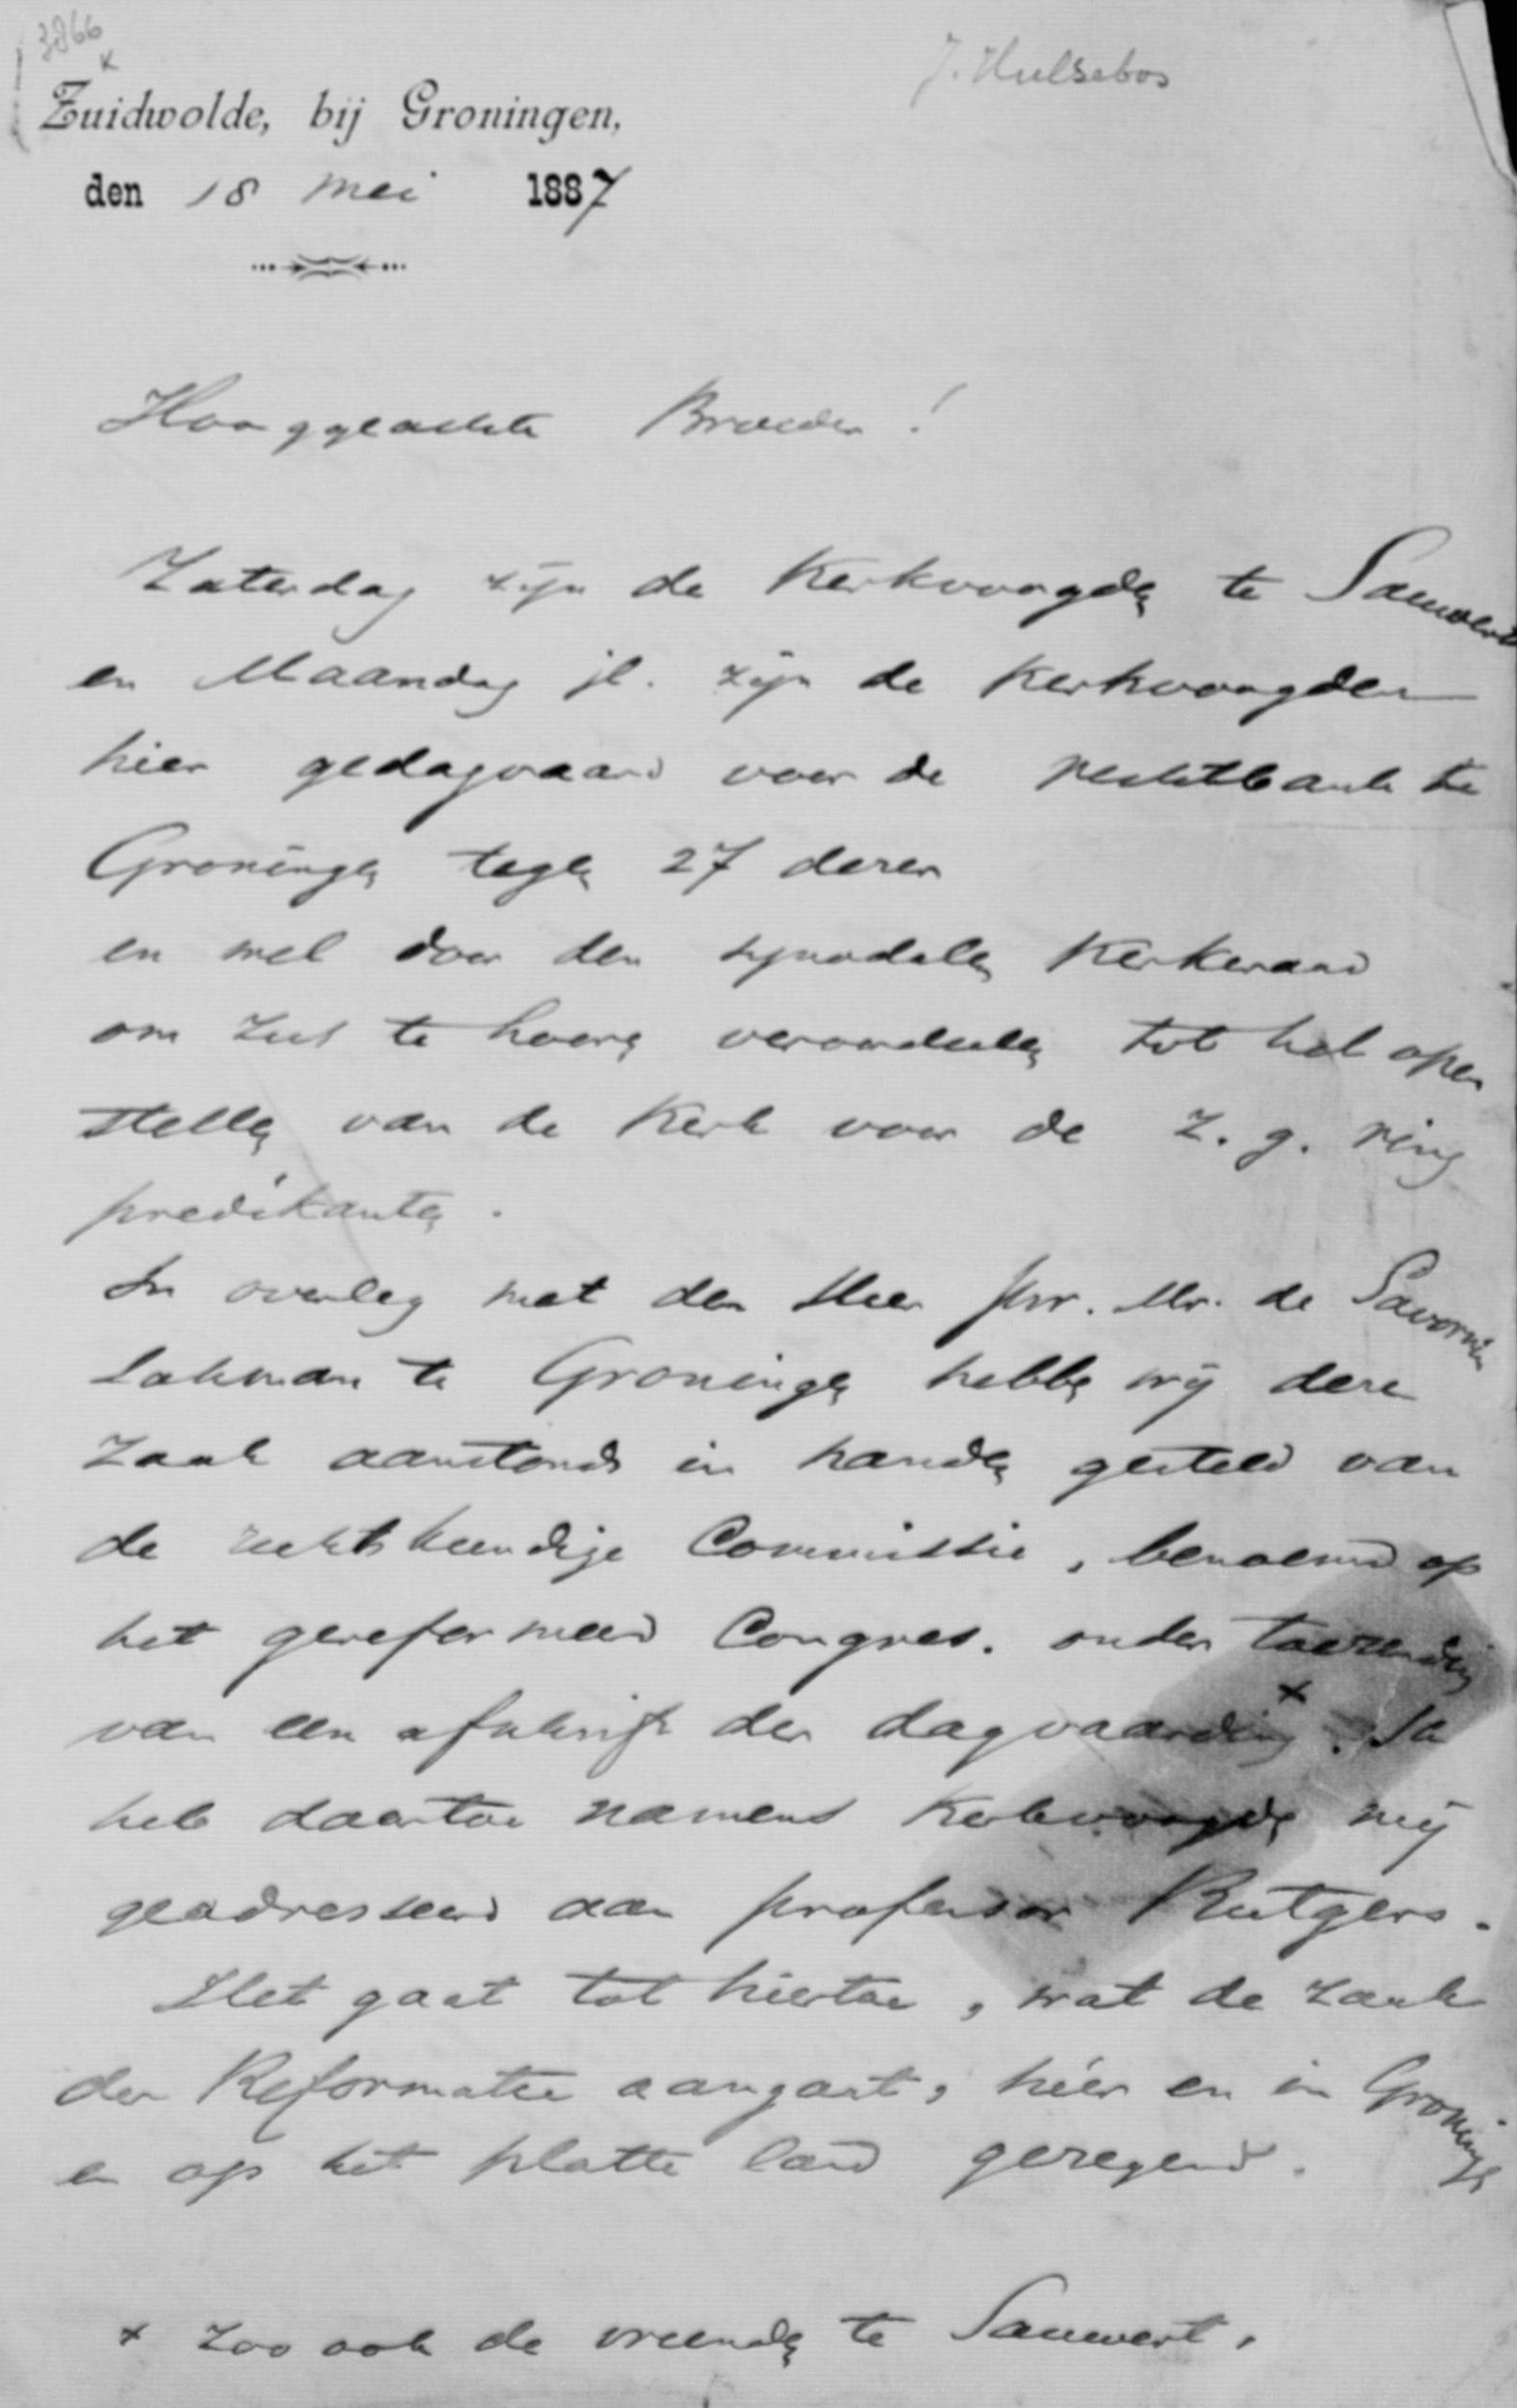 3866
J. Hulsebos
Zuidwolde, bij Groningen,
den 18 Mei 1887
Hooggeachte Broeder!
Zaterdag zijn de Kerkvoogden te Sauwert
en Maandag jl. zijn de Kerkvoogden
hier gedagvaard voor de rechtbank te
Groningen tegen 27 dezer
en wel door den synodalen Kerkeraad
om zich te hooren veroordeelen tot het open
stellen van de Kerk voor de z.g. ring
predikanten.
In overleg met den Heer Jhr. Mr. de Savornin
Lohman te Groningen hebben wij deze
zaak aanstonds in handen gesteld van
de rechtskundige Commissie, benoemd op
het gereformeerd Congres. onder toezending
van een afschrift der dagvaarding x. Ik
heb daartoe namens Kerkvoogden mij
geadresseerd aan professor Rutgers.
Het gaat tot hiertoe, wat de zaak
der Reformatie aangaat, hier en in Groningen
en op het platte land gezegend.
x zoo ook de vrienden te Sauwert.